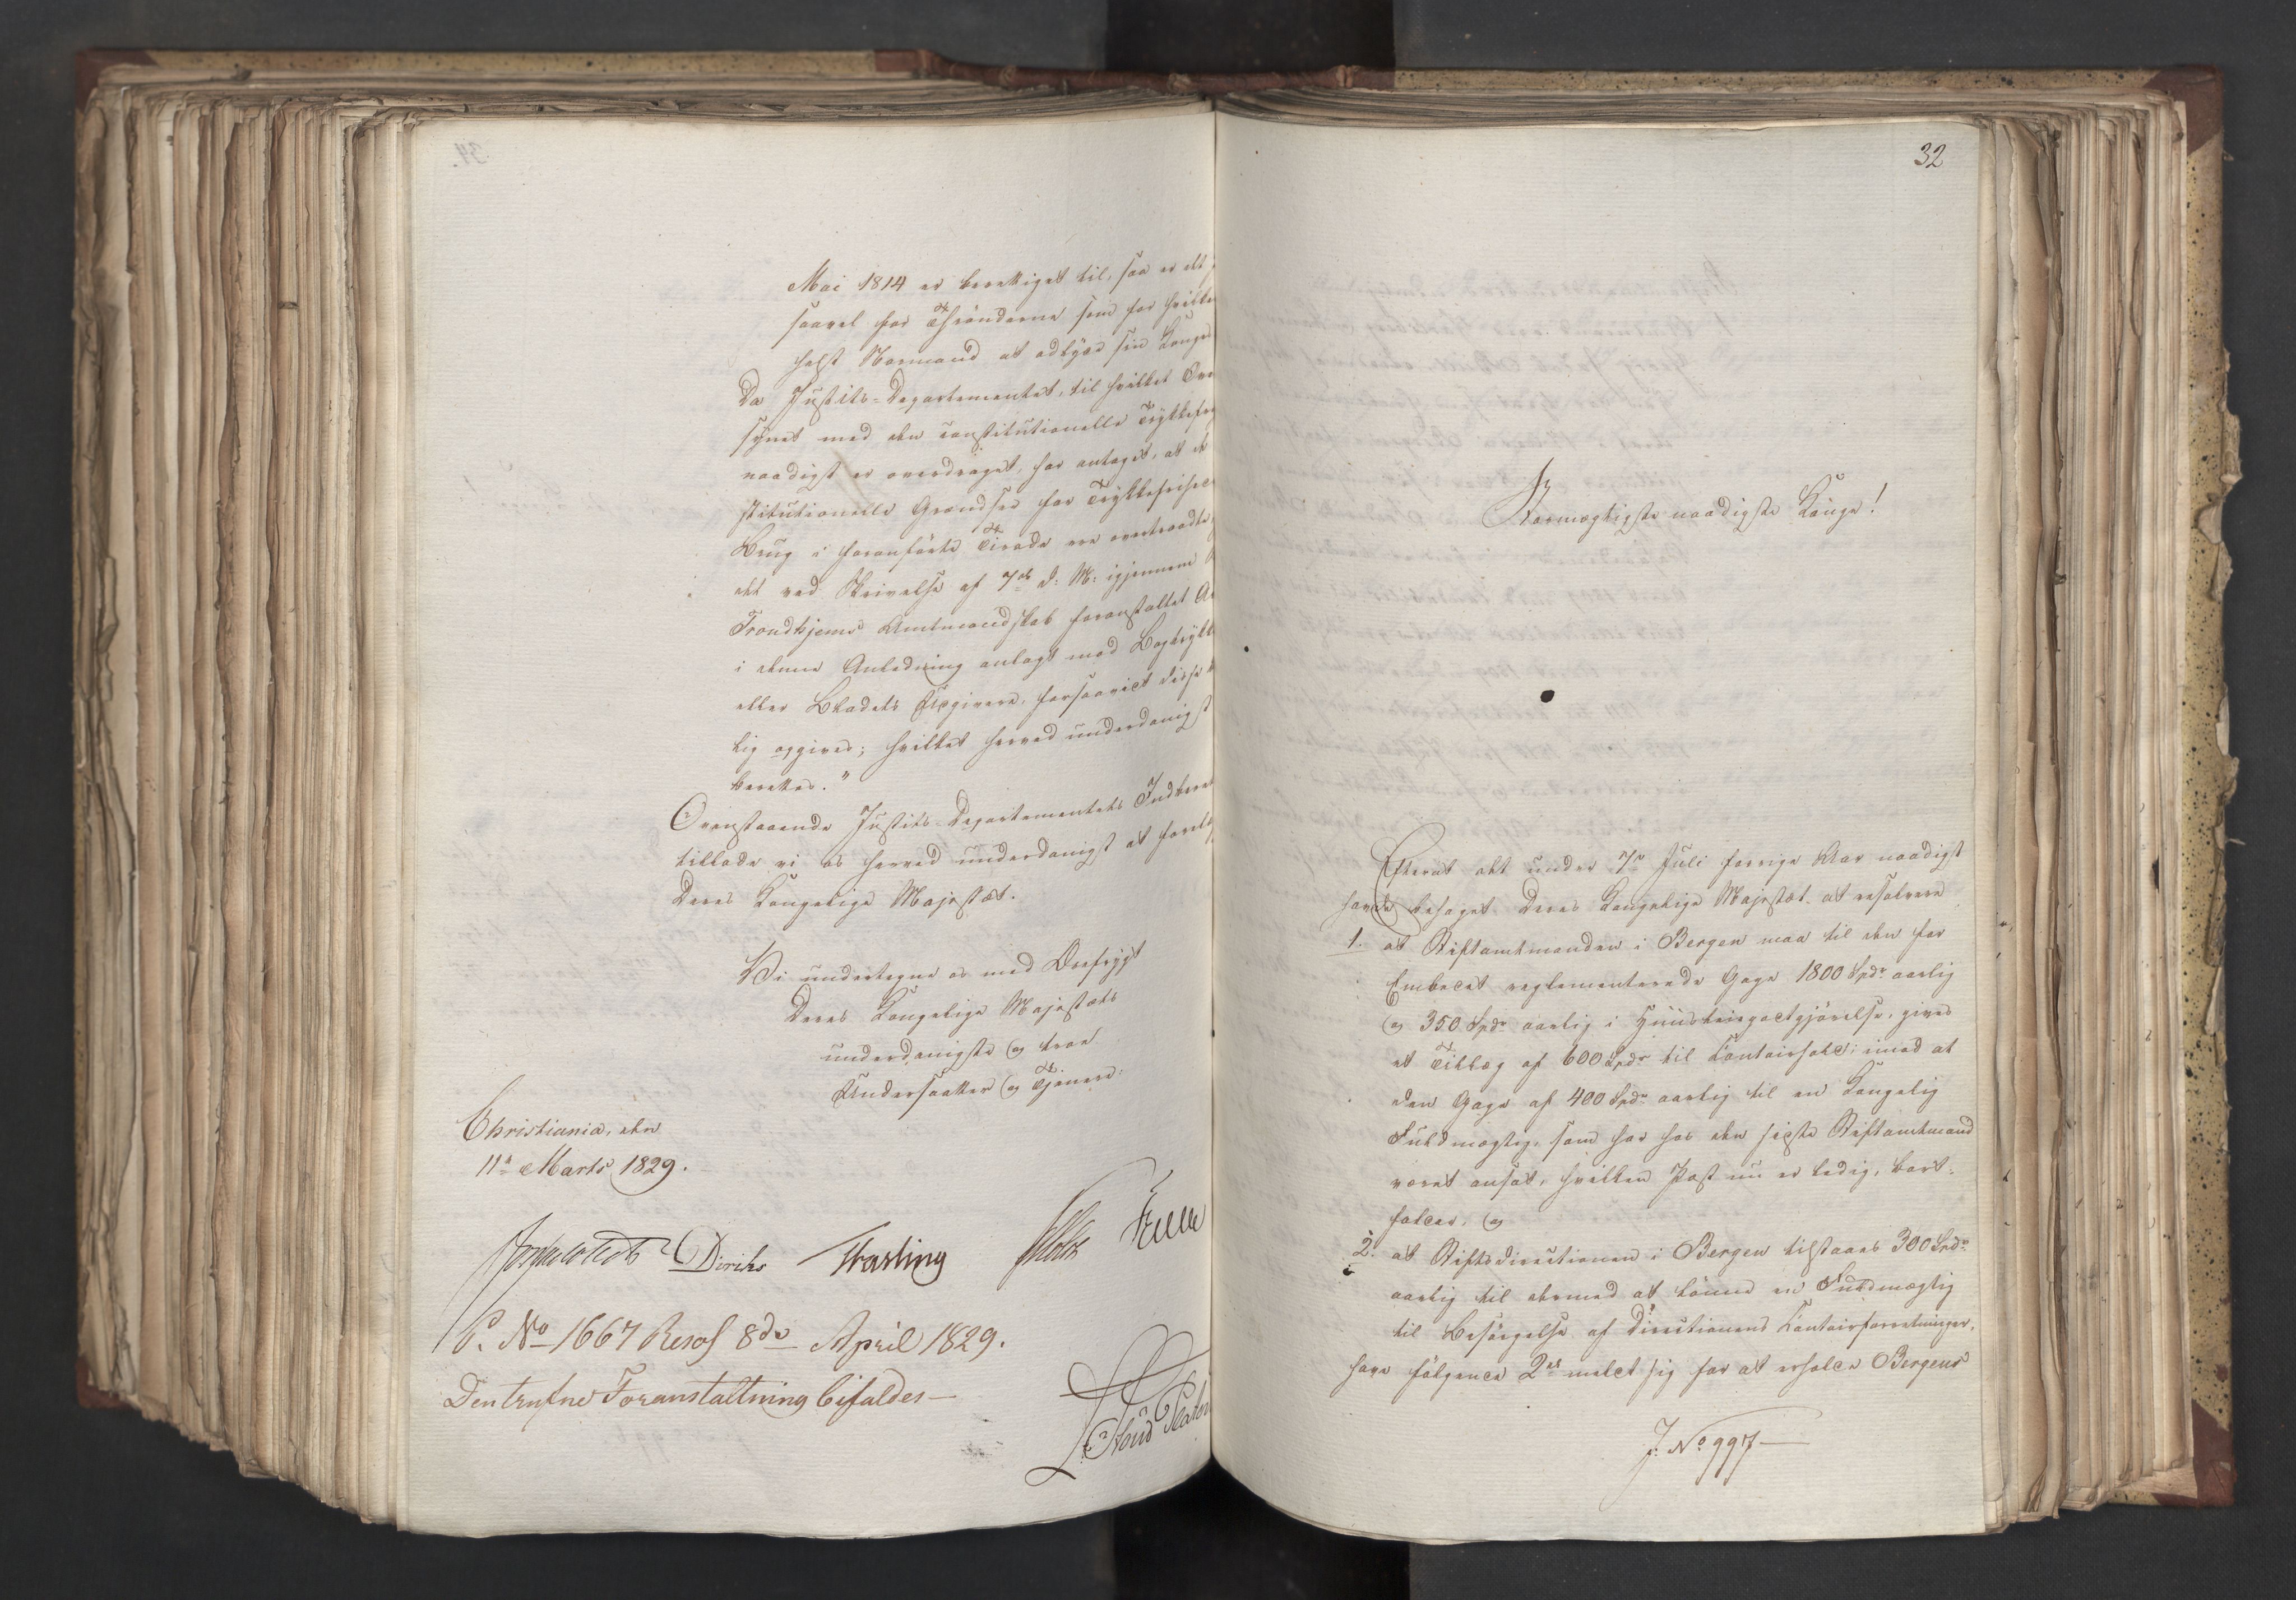 Mai 1814 er berettiget til, saa er det
saavel for Thrönderne som for hvilken
helst Normand at adlyde sin Konges
Da Justits-Departementet, til hvilket Over
synet med den constitutionelle Trykkefri
naadigst er overdraget, har antaget, at de
stitutionelle Grændser for Trykkefrihed
Brug i foranførte Tirade ere overtraadte
det ved Skrivelse af 7de d: M: igjennem
Trondhjems Amtmandskab foranstaltet
i denne Anledning anlagt mod Bogtrykk
eller Bladets Udgivere, forsaavidt disse
lig opgives; hvilket herved underdanigst
berettes."
Ovenstaaende Justits-Departementets Indberet
tillade vi os herved underdanigst at forelæ
Deres Kongelige Majestæt.
Vi undertegne os med Ærefrygt
Deres Kongelige Majestæts
underdanigste og troe
Undersaatter og Tjenere.
Christiania, den
11te Marts 1829.
Diriks Krasting Holst Fasting
P. No 1667 Resol 8de April 1829.
Den trufne Foranstaltning bifaldes—
32
Stormægtigste naadigste Konge!
Efterat det under 7de Juli forrige Aar naadigst
havde behaget Deres Kongelige Majestæt at resolvere
1. at Stiftamtmanden i Bergen maa til den for
Embedet reglementerede Gage 1800 Spdr aarlig
og 350 Spdr aarlig i Huusleiegodtgjörelse, gives
et Tillæg af 600 Spdr til Contoirhold; imod at
den Gage af 400 Spdr aarlig til en Kongelig
Fuldmægtig, som har hos den sidste Stiftamtmand
været ansat, hvilken Post nu er ledig, bort-
falder, og
2. at Stiftsdirectionen i Bergen tilstaaes 300 Spdr
aarlig til dermed at lönne en Fuldmægtig
til Besörgelse af Directionens Contoirforretninger,
have fölgende 2de meldt sig for at erholde Bergens
J. No 997—